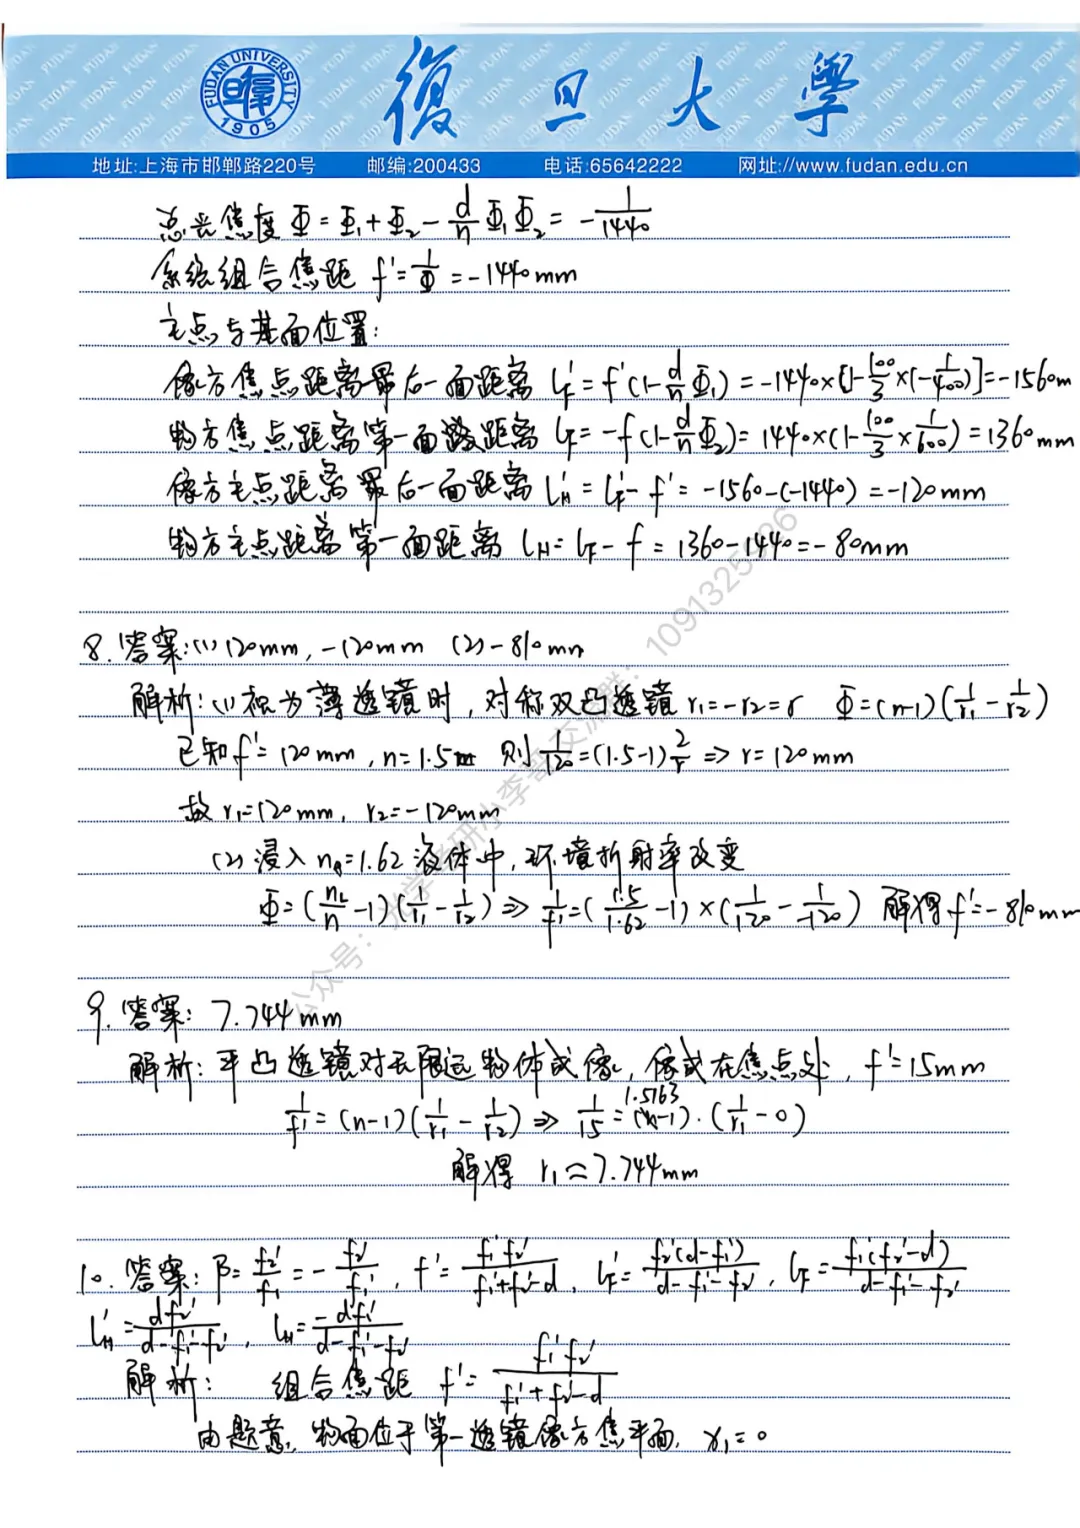 復旦大學
FUDAN UNIVERSITY
1905
地址:上海市邯郸路220号 邮编:200433 电话:65642222 网址://www.fudan.edu.cn
总光焦度 Φ = Φ₁ + Φ₂ - d/n Φ₁Φ₂ = -1/1440
系统组合焦距 f' = 1/Φ = -1440mm
主点与基面位置:
像方焦点距离最后一面距离 l_F' = f'(1 - d/n Φ₁) = -1440×[1 - 100/3 ×(-1/400)] = -1560m
物方焦点距离第一面距离 l_F = -f(1 - d/n Φ₂) = 1440×(1 - 100/3 × 1/600) = 1360mm
像方主点距离最后一面距离 l_H' = l_F' - f' = -1560-(-1440) = -120mm
物方主点距离第一面距离 l_H = l_F - f = 1360-1440 = -80mm
8. 答案:(1) 120mm, -120mm (2) -810mm
解析: (1) 视为薄透镜时, 对称双凸透镜 r₁=-r₂=r Φ=(n-1)(1/r₁ - 1/r₂)
已知 f'=120mm, n=1.5 则 1/120 = (1.5-1) 2/r ⇒ r=120mm
故 r₁=120mm, r₂=-120mm
(2) 浸入 n=1.62 液体中, 环境折射率改变
Φ = (n_L/n - 1)(1/r₁ - 1/r₂) ⇒ 1/f' = (1.5/1.62 - 1)×(1/120 - 1/-120) 解得 f'=-810mm
9. 答案: 7.744mm
解析: 平凸透镜对无限远物体成像, 像成在焦点处, f'=15mm
1/f' = (n-1)(1/r₁ - 1/r₂) ⇒ 1/15 = (1.5163-1)·(1/r₁ - 0)
解得 r₁ ≈ 7.744mm
10. 答案: β = f₂'/f₁ = -f₂'/f₁', f' = f₁'f₂'/(f₁'+f₂'-d), l_F' = f₂'(d-f₁')/(d-f₁'-f₂'), l_F = f₁'(f₂'-d)/(d-f₁'-f₂')
l_H' = df₂'/(d-f₁'-f₂'), l_H = -df₁'/(d-f₁'-f₂')
解析: 组合焦距 f' = f₁'f₂'/(f₁'+f₂'-d)
由题意, 物面位于第一透镜像方焦平面, x₁=0
公众号: 光学考研小李哥 交流群: 1091325926